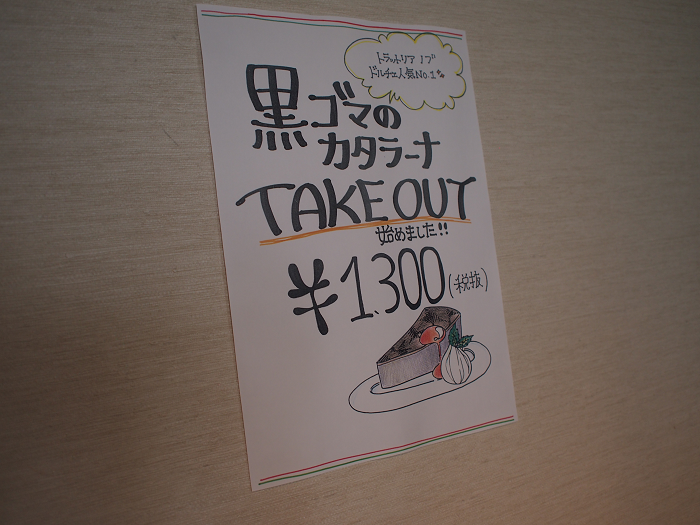 トラットリア ノブ
ドルチェ人気No.1
黒ゴマの
カタラーナ
TAKE OUT
始めました!!
¥1,300(税抜)